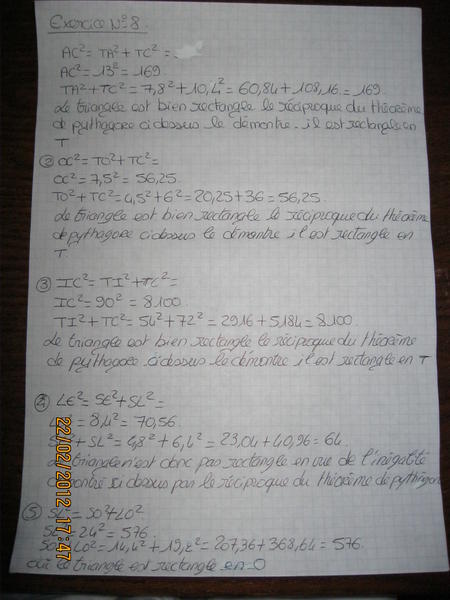 Exercice N°8.
AC² = TA² + TC² =
AC² = 13² = 169.
TA² + TC² = 7,8² + 10,4² = 60,84 + 108,16 = 169.
Le triangle est bien rectangle le réciproque du théorème
de pythagore ci dessus le démontre. il est rectangle en
T
② OC² = TO² + TC² =
OC² = 7,5² = 56,25.
TO² + TC² = 4,5² + 6² = 20,25 + 36 = 56,25.
Le triangle est bien rectangle le réciproque du théorème
de pythagore ci dessus le démontre il est rectangle en
T.
③ IC² = TI² + TC² =
IC² = 90² = 8100.
TI² + TC² = 54² + 72² = 2916 + 5184 = 8100.
Le triangle est bien rectangle le réciproque du théorème
de pythagore ci dessus le démontre il est rectangle en T
LE² = SE² + SL² =
= 8,4² = 70,56.
+ SL² = 4,8² + 6,4² = 23,04 + 40,96 = 64.
triangle n'est donc pas rectangle en vue de l'inégalité
dessus par le réciproque du théorème de
⑤ SL² = SO² + LO²
= 24² = 576.
LO² = 14,4² + 19,2² = 207,36 + 368,64 = 576.
oui le triangle est rectangle en O
22/02/2012 17:47